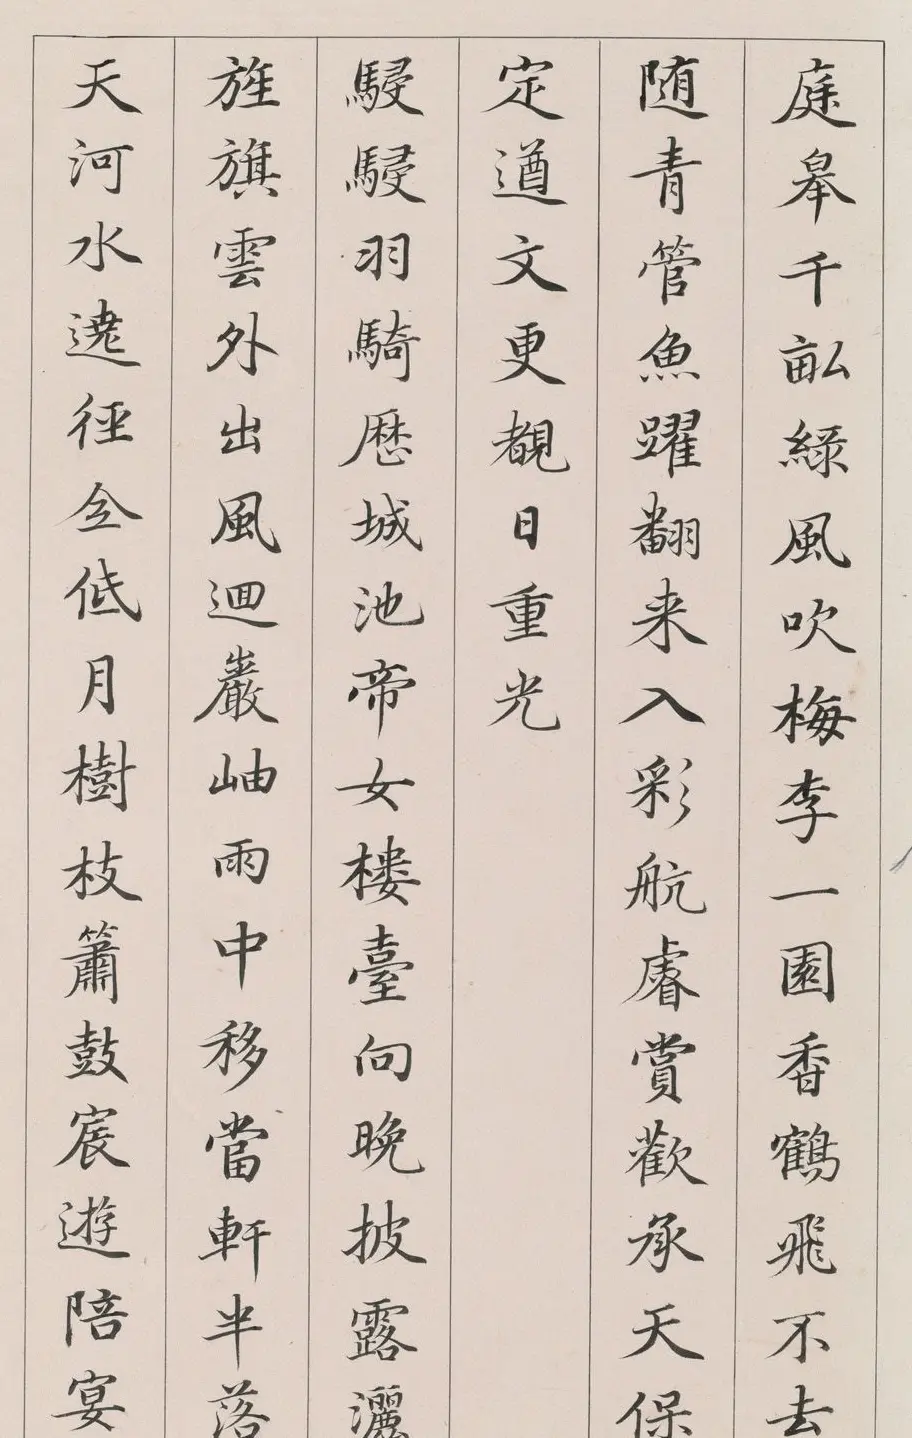 庭皋千畝綠風吹梅李一園香鶴飛不去
随青管魚躍翻来入彩航睿賞歡承天保
定遒文更覩日重光
駸駸羽騎歷城池帝女樓臺向晚披露灑
旌旗雲外出風迴巖岫雨中移當軒半落
天河水遶徑全低月樹枝簫鼓宸遊陪宴